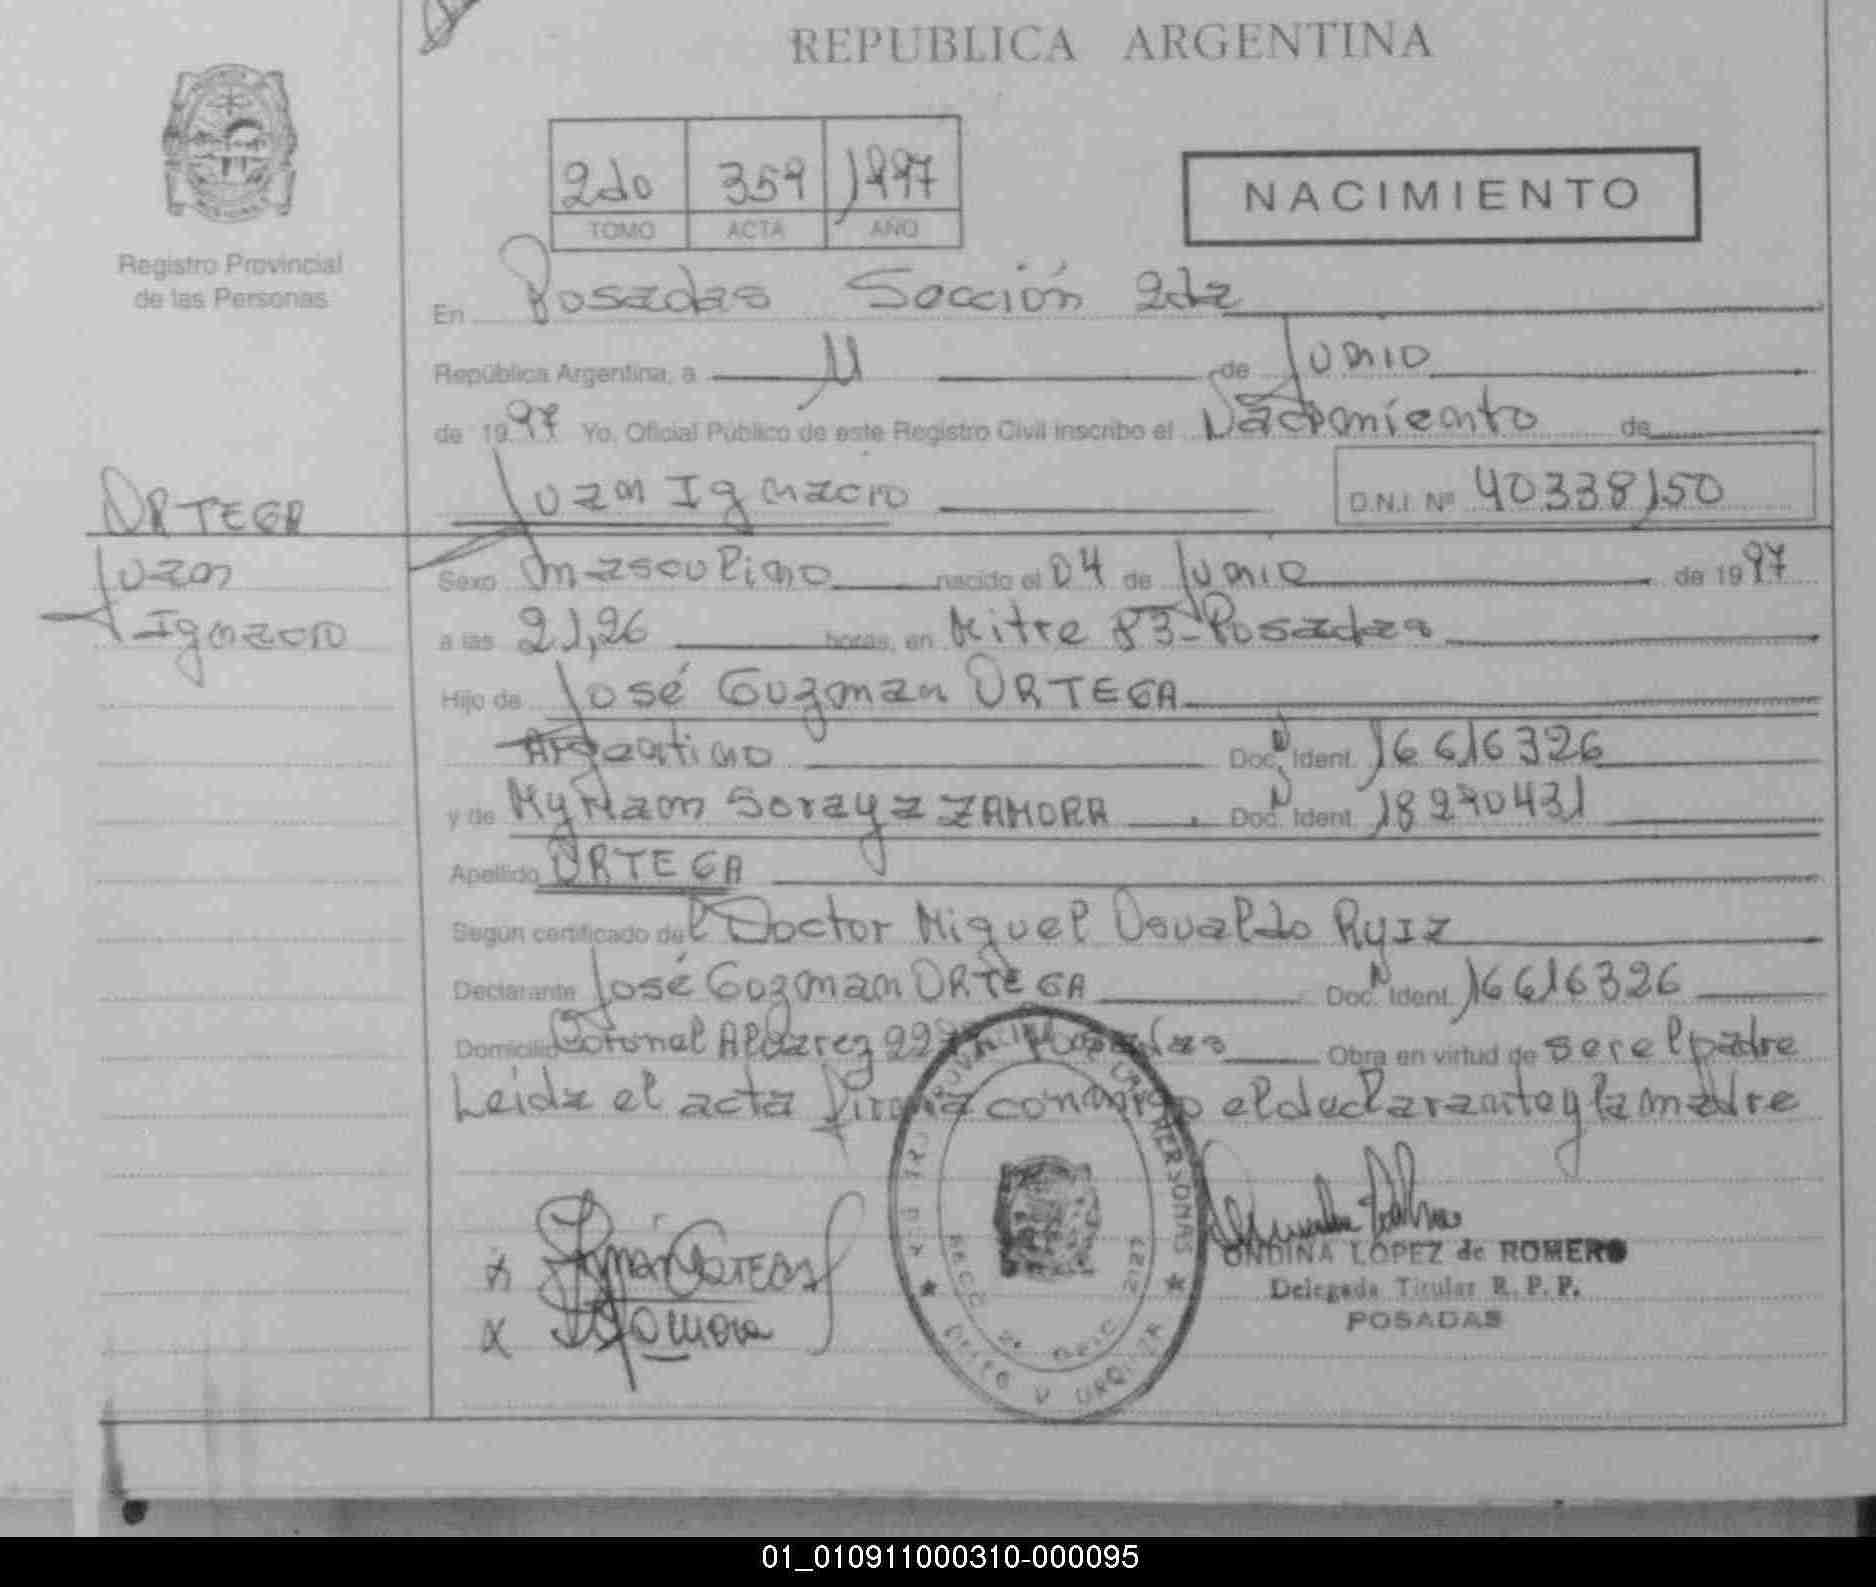 REPUBLICA ARGENTINA
Registro Provincial
de las Personas
2do 359 1997
TOMO ACTA AÑO
NACIMIENTO
En Posadas Sección 2da
República Argentina, a 11 de Junio
de 1997 Yo, Oficial Público de este Registro Civil inscribo el Nacimiento de
Juan Ignacio D.N.I. Nº 40338150
ORTEGA
Juan
Ignacio
Sexo masculino nacido el 04 de Junio de 1997
a las 21,26 horas, en Mitre 83-Posadas
Hijo de José Guzman ORTEGA
Argentino Doc. N Ident. 16616326
y de Myriam Soraya ZAMORA Doc. N Ident. 18270431
Apellido ORTEGA
Según certificado del Doctor Miguel Osvaldo Ryiz
Declarante José Guzman ORTEGA Doc. N Ident. 16616326
Domicilio Coronel Alvarez Posadas Obra en virtud de ser el padre
Leida el acta firma conmigo el declarante y la madre
x ORTEGA
x Zamora
PERSONAS
2127
URQUIZA
ONDINA LOPEZ de ROMERO
Delegada Titular R. P. P.
POSADAS
01_010911000310-000095